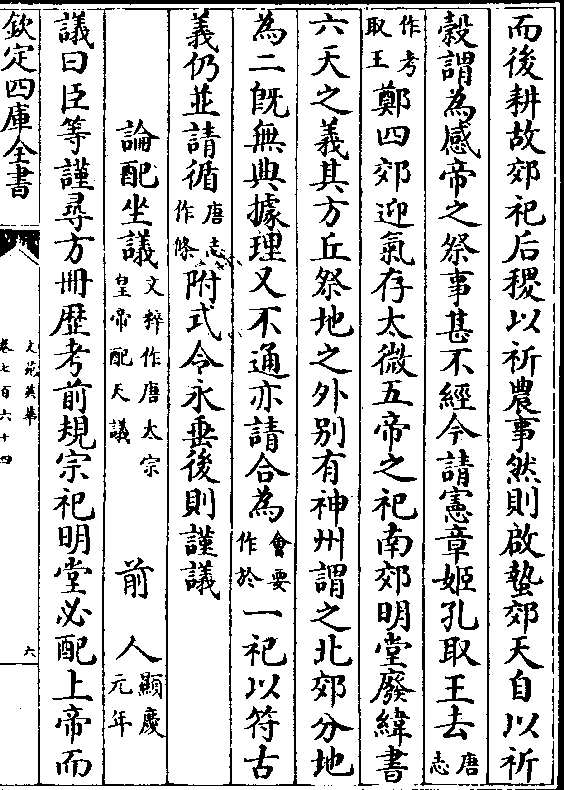 而後耕故郊祀后稷以祈農事然則啟蟄郊天自以祈
穀謂為感帝之祭事甚不經今請憲章姬孔取王去唐志
作考取王鄭四郊迎氣存太微五帝之祀南郊明堂廢緯書
六天之義其方丘祭地之外別有神州謂之北郊分地
為二既無典據理又不通亦請合為會要作於一祀以符古
義仍並請循唐志作條附式令永垂後則謹議
論配坐議文粹作唐太宗皇帝配天議 前人顯慶元年
議曰臣等謹尋方冊歷考前規宗祀明堂必配上帝而
欽定四庫全書
文苑英華
卷七百六十四
六